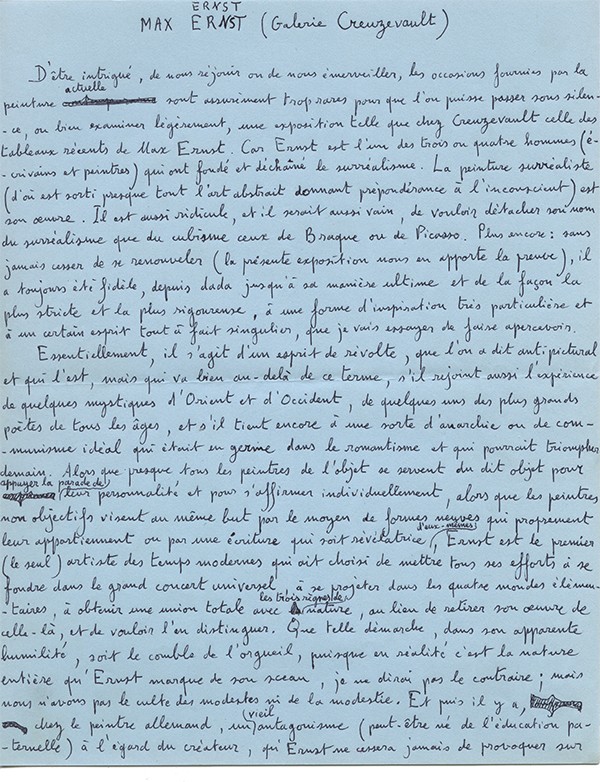 ERNST
MAX ERNST (Galerie Creuzevault)
D'être intrigué, de nous réjouir ou de nous émerveiller, les occasions fournies par la
actuelle
peinture sont assurément trop rares pour que l'on puisse passer sous silen-
-ce, ou bien examiner légèrement, une exposition telle que chez Creuzevault celle des
tableaux récents de Max Ernst. Car Ernst est l'un des trois ou quatre hommes (é-
-crivains et peintres) qui ont fondé et déchaîné le surréalisme. La peinture surréaliste
(d'où est sorti presque tout l'art abstrait donnant prépondérance à l'inconscient) est
son œuvre. Il est aussi ridicule, et il serait aussi vain, de vouloir détacher son nom
du surréalisme que du cubisme ceux de Braque ou de Picasso. Plus encore : sans
jamais cesser de se renouveler (la présente exposition nous en apporte la preuve), il
a toujours été fidèle, depuis dada jusqu'à sa manière ultime et de la façon la
plus stricte et la plus rigoureuse, à une forme d'inspiration très particulière et
à un certain esprit tout à fait singulier, que je vais essayer de faire apercevoir.
Essentiellement, il s'agit d'un esprit de révolte, que l'on a dit antipictural
et qui l'est, mais qui va bien au-delà de ce terme, s'il rejoint aussi l'expérience
de quelques mystiques d'Orient et d'Occident, de quelques uns des plus grands
poètes de tous les âges, et s'il tient encore à une sorte d'anarchie ou de com-
-munisme idéal qui était en germe dans le romantisme et qui pourrait triompher
demain. Alors que presque tous les peintres de l'objet se servent du dit objet pour
appuyer la parade de
leur personnalité et pour s'affirmer individuellement, alors que les peintres
non objectifs visent au même but par le moyen de formes neuves qui proprement
d'eux-mêmes
leur appartiennent ou par une écriture qui soit révélatrice, Ernst est le premier
(le seul) artiste des temps modernes qui ait choisi de mettre tous ses efforts à se
fondre dans le grand concert universel, à se projeter dans les quatre mondes élémen-
les trois règnes de
-taires, à obtenir une union totale avec la nature, au lieu de retirer son œuvre de
celle-là, et de vouloir l'en distinguer. Que telle démarche, dans son apparente
humilité, soit le comble de l'orgueil, puisque en réalité c'est la nature
entière qu'Ernst marque de son sceau, je ne dirai pas le contraire ; mais
nous n'avons pas le culte des modestes ni de la modestie. Et puis il y a,
vieil
chez le peintre allemand, un antagonisme (peut-être né de l'éducation pa-
-ternelle) à l'égard du créateur, qu'Ernst ne cessera jamais de provoquer sur